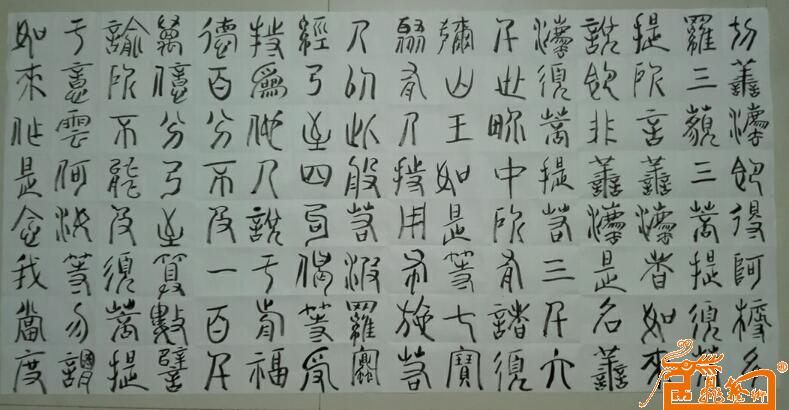 切善法即得阿耨多
羅三藐三菩提須菩
提所言善法者如來
說即非善法是名善
法須菩提若三千大
千世界中所有諸須
彌山王如是等七寶
聚有人持用布施若
人以此般若波羅蜜
經乃至四句偈等受
持為他人說于前福
德百分不及一百千
萬億分乃至算數譬
喻所不能及須菩提
于意雲何汝等勿謂
如來作是念我當度